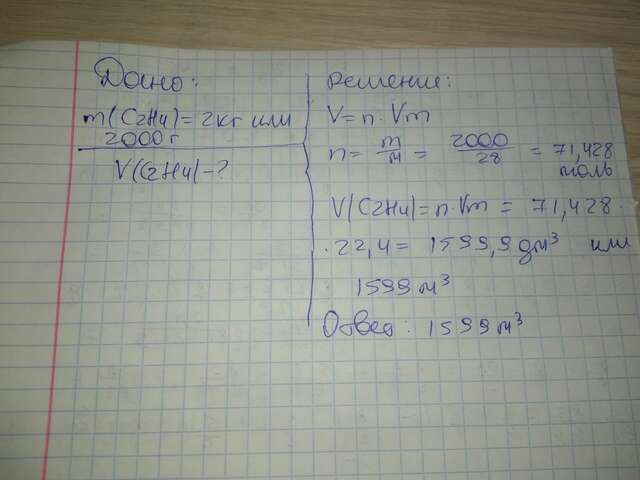 Дано:
m(C2H4)=2кг или
2000г
V(C2H4)-?
Решение:
V=n·Vm
n= m/M = 2000/28 = 71,428
моль
V(C2H4)=n·Vm = 71,428·
·22,4= 1599,9дм³ или
1599м³
Ответ: 1599м³